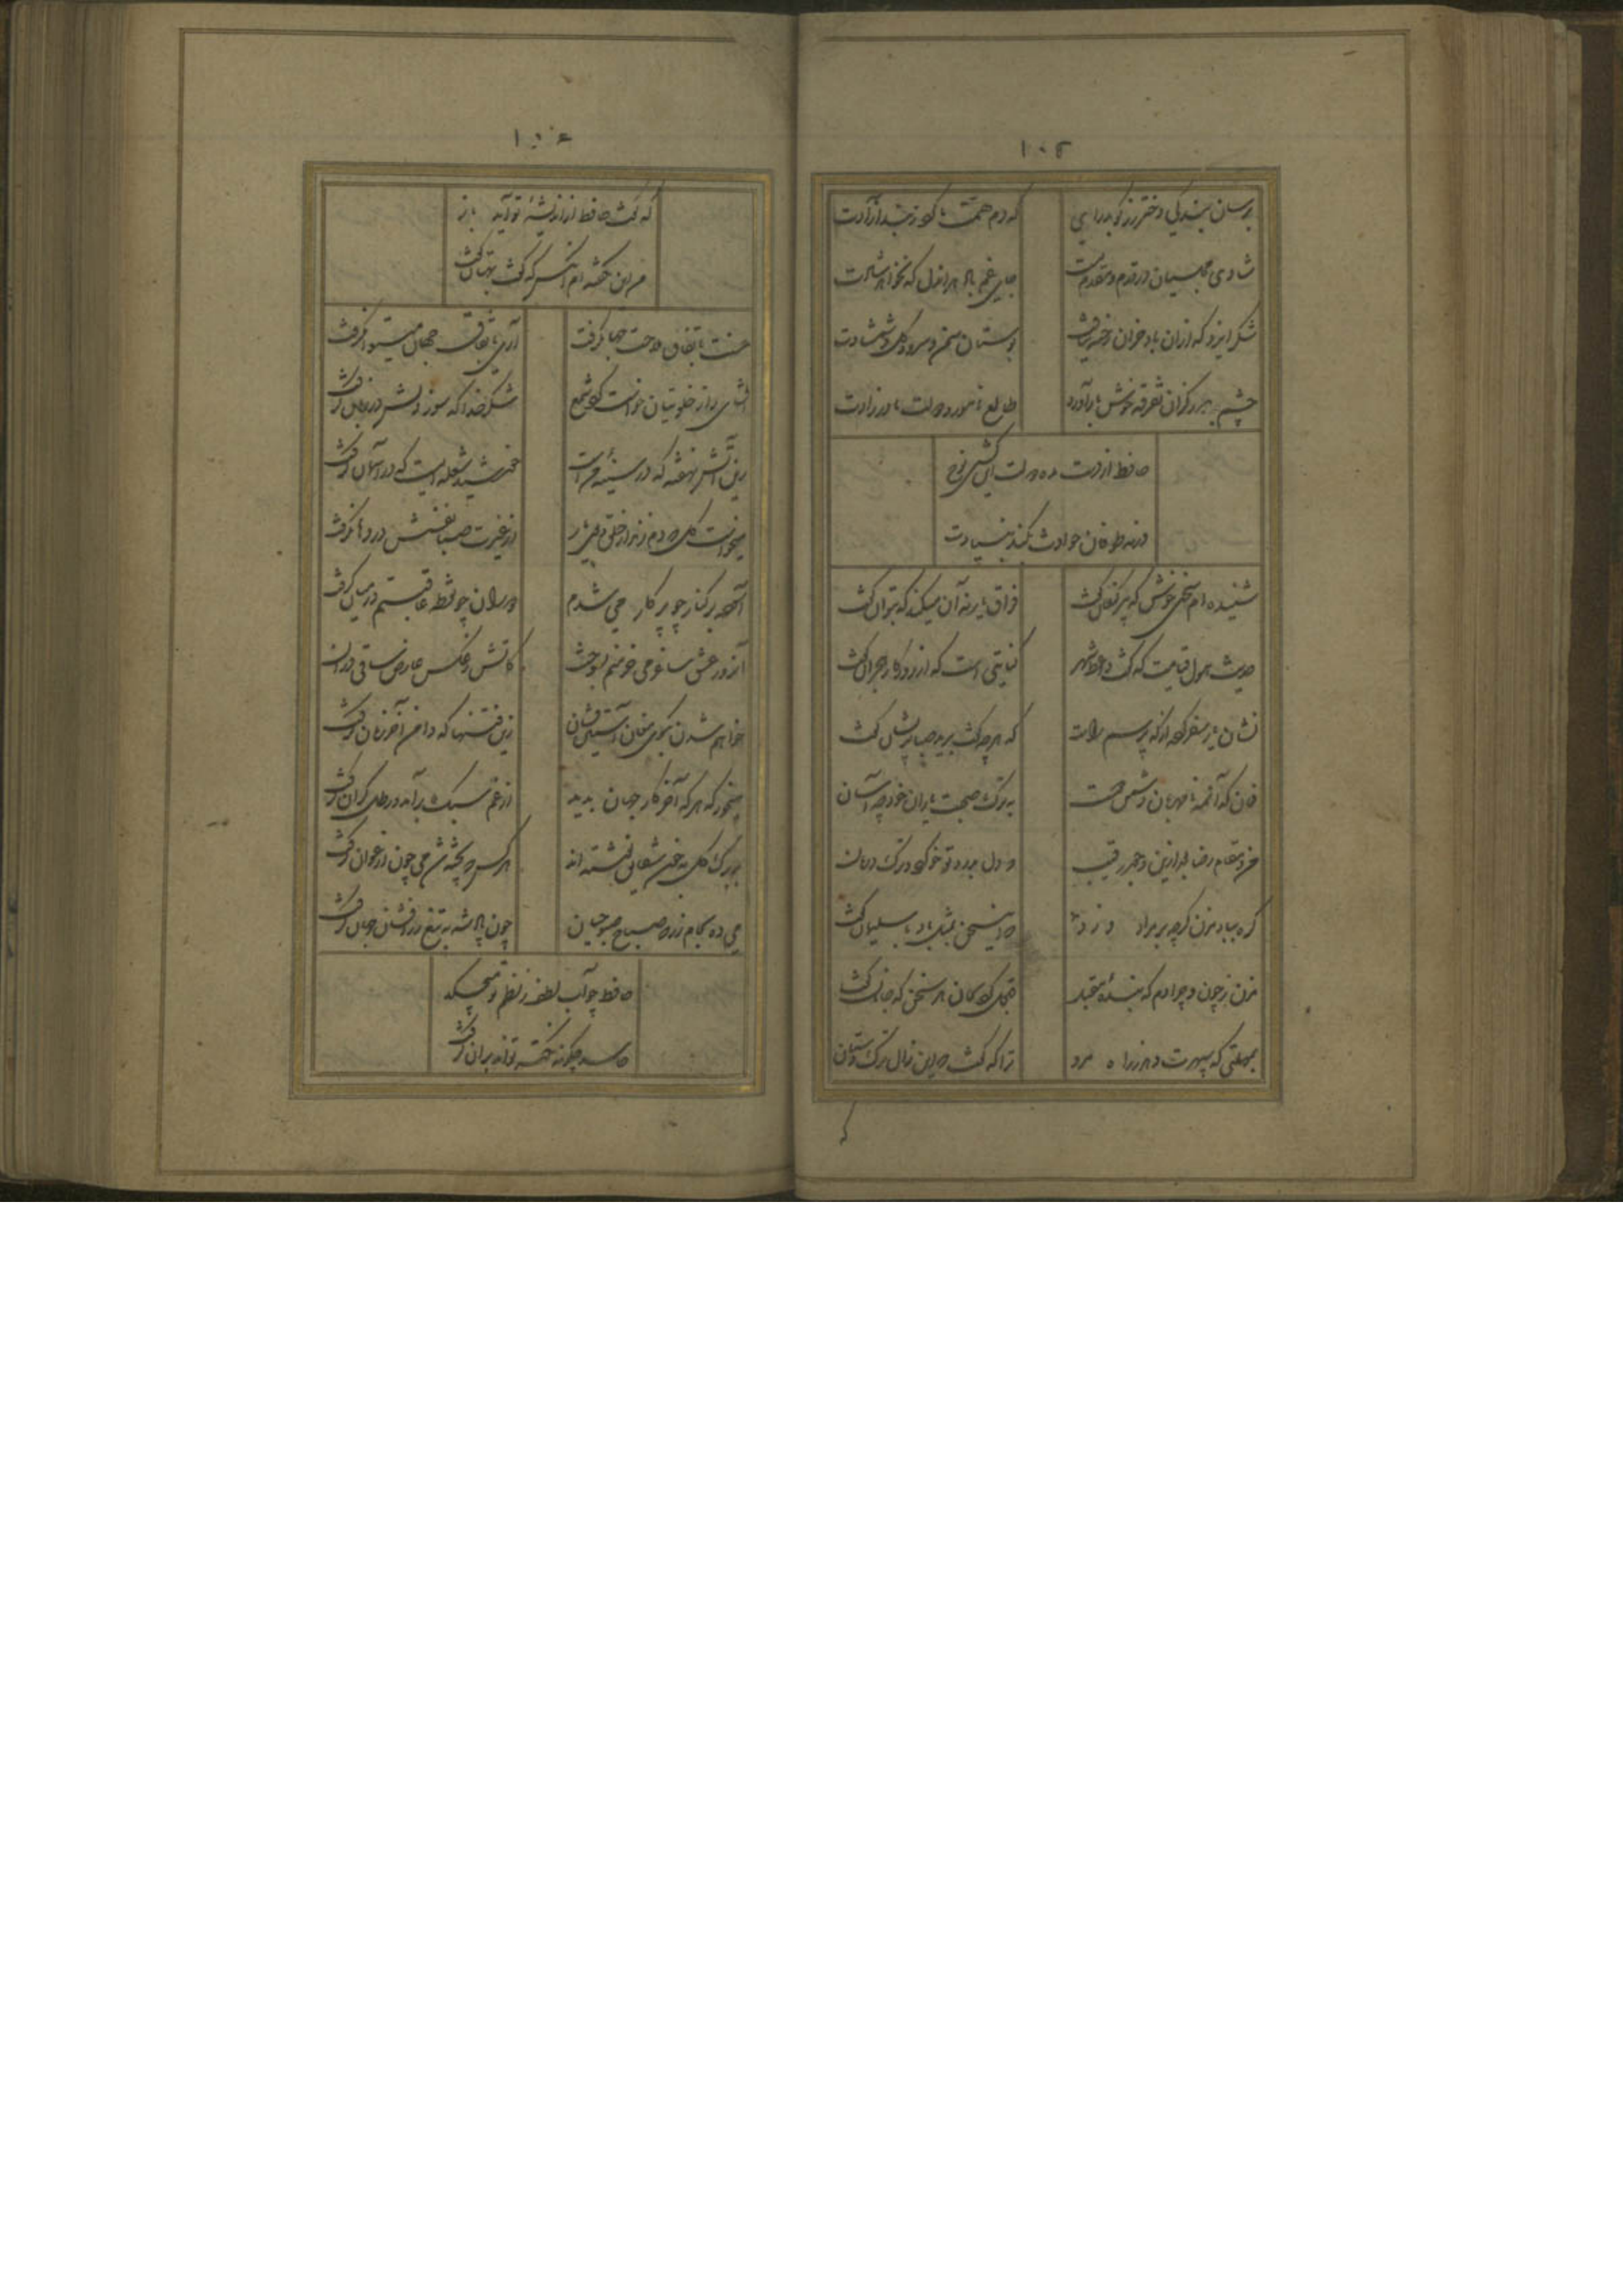 ۱۰۵
برسان بندگی دختر رز گو بدر آی که دم همت ما کرد ز بند آزادت
شادی مجلسیان در قدم و مقدم تست جای غم باد هر اندل که نخواهد شادت
شکر ایزد که ازان باد خزان رخنه نیافت بوستان سمن و سرو و گل و شمشادت
چشم بد دور کزان تفرقه خوش باز آورد طالع نامور و دولت مادر زادت
حافظ از دست مده دولت این کشتی نوح
ورنه طوفان حوادث بکند بنیادت
شنیده ام سخنی خوش که پیر کنعان گفت فراق یار نه آن میکند که بتوان گفت
حدیث هول قیامت که گفت واعظ شهر کنایتی است که از روزگار هجران گفت
نشان یار سفر کرده از که پرسم راست که هرچه گفت برید صبا پریشان گفت
فغان که آنمه نامهربان دشمن دوست به ترک صحبت یاران خود چه آسان گفت
من و مقام رضا بعد ازین و جور رقیب که دل بدرد تو خو کرد و ترک درمان گفت
گره بباد مزن گرچه بر مراد وزد که این سخن بمثل باد با سلیمان گفت
مزن ز چون و چرا دم که بنده مقبل قبول کرد بجان هر سخن که جانان گفت
بمهلتی که سپهرت دهد ز راه مرو ترا که گفت که این زال ترک دستان گفت
که
۱۰۶
که گفت حافظ از اندیشه تو آید باز
من این نگفته ام آنکس که گفت بهتان گفت
حسنت باتفاق ملاحت جهان گرفت آری باتفاق جهان میتوان گرفت
افشای راز خلوتیان خواست کرد شمع شکر خدا که سوز دلش در زبان گرفت
زین آتش نهفته که در سینه من است خورشید شعله ایست که در آسمان گرفت
میخواست گل که دم زند از رنگ و بوی یار از غیرت صبا نفسش در دهان گرفت
آسوده بر کنار چو پرگار می شدم دوران چو نقطه عاقبتم در میان گرفت
آنروز عشق ساغر می خرمنم بسوخت کاتش ز عکس عارض ساقی دران گرفت
خواهم شدن بکوی مغان آستین فشان زین فتنها که دامن آخر زمان گرفت
میخور که هر که آخر کار جهان بدید از غم سبک بر آمد و رطل گران گرفت
بر برگ گل به خون شقایق نوشته اند هرکس که پخته شد می چون ارغوان گرفت
می ده بجام زر که صباح صبوحیان چون پادشه به تیغ زرافشان جهان گرفت
حافظ چو آب لطف ز نظم تو میچکد
حاسد چگونه نکته تواند بران گرفت